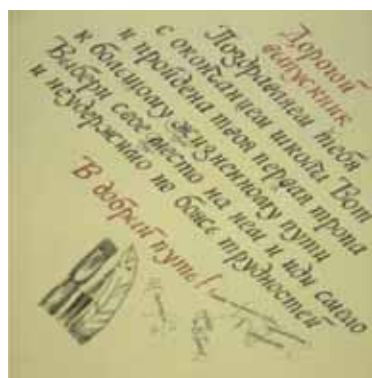 Дорогой
выпускник
Поздравляем тебя
с окончанием школы Вот
и пройдена твоя первая тропа
к большому жизненному пути
Выбери свое место на нем и иди смело
и неудержимо не боясь трудностей
В добрый путь!